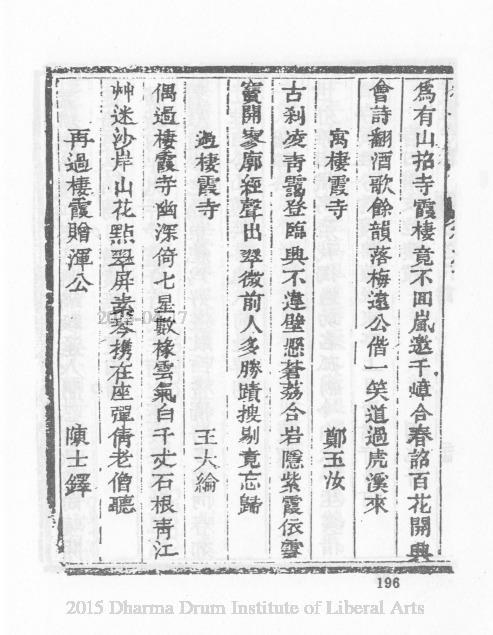 為有山招寺霞棲竟不回嵐邀千嶂合春諂百花開興
會詩翻酒歌餘韻落梅遠公偕一笑道過虎溪來
寓棲霞寺 鄭玉汝
古刹凌青靄登臨興不違壁懸蒼荔合岩隱紫霞依雲
竇開寥廓經聲出翠微前人多勝蹟搜剔竟忘歸
過棲霞寺 王大綸
偶過棲霞寺幽深倚七星數椽雲氣白千丈石根青江
艸迷沙岸山花點翠屏素琴携在座彈倩老僧聽
再過棲霞贈渾公 陳士鐸
196
2015 Dharma Drum Institute of Liberal Arts